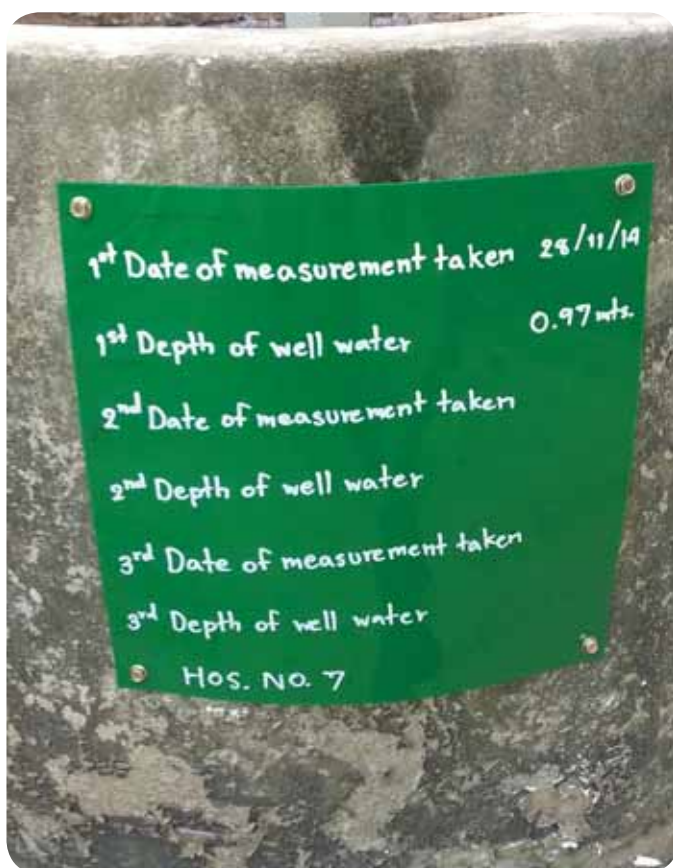 1st Date of measurement taken 28/11/14
1st Depth of well water 0.97 mts.
2nd Date of measurement taken
2nd Depth of well water
3rd Date of measurement taken
3rd Depth of well water
HOS. NO. 7